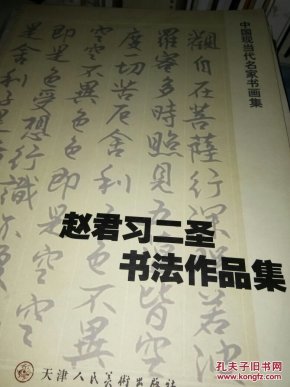 中国现当代名家书画集
觀自在菩薩行深般若波
羅蜜多時照見五蘊皆空
度切苦厄舍利
空空不異色色即是空空
即是色受想行識
是舍利子
赵君习二圣
书法作品集
天津人民美術出版社
孔夫子旧书网